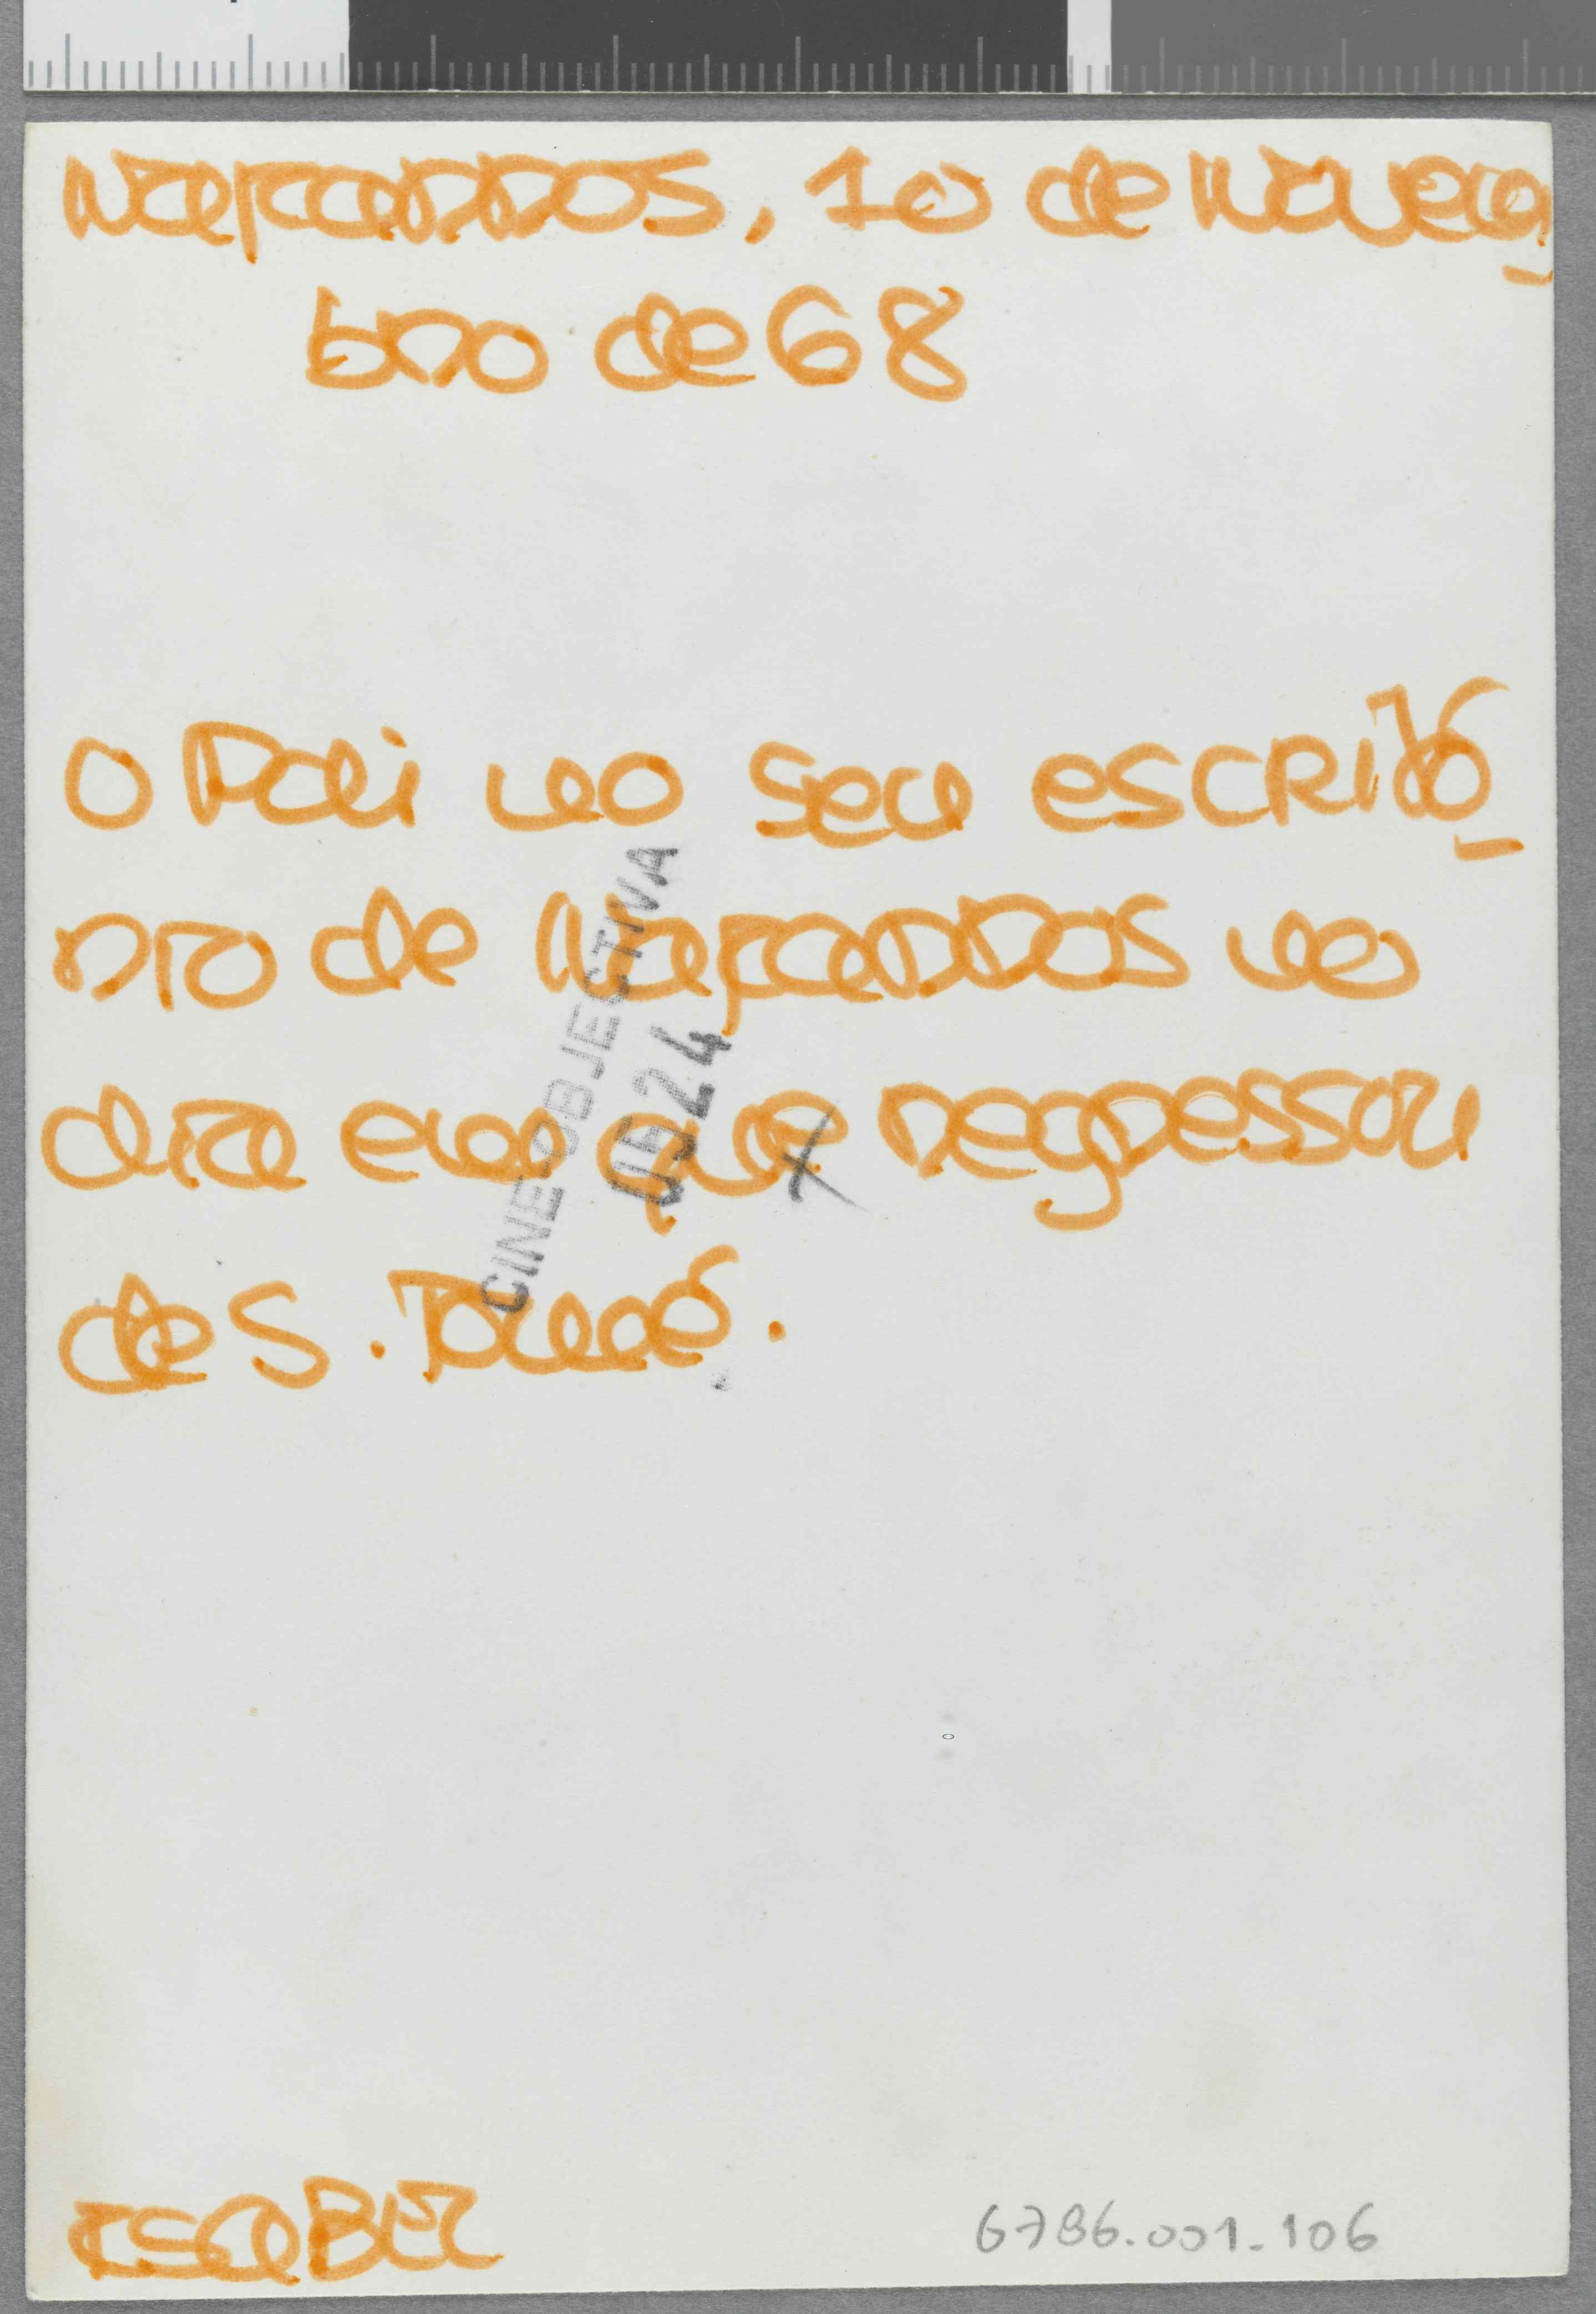 Mafarros, 10 de Novem-
bro de 68
O Pai no seu escritó-
rio de Mafarros no
dia em que regressou
de S. Tomé.
CINE OBJECTIVA
0524
ISABEL
6786.001.106